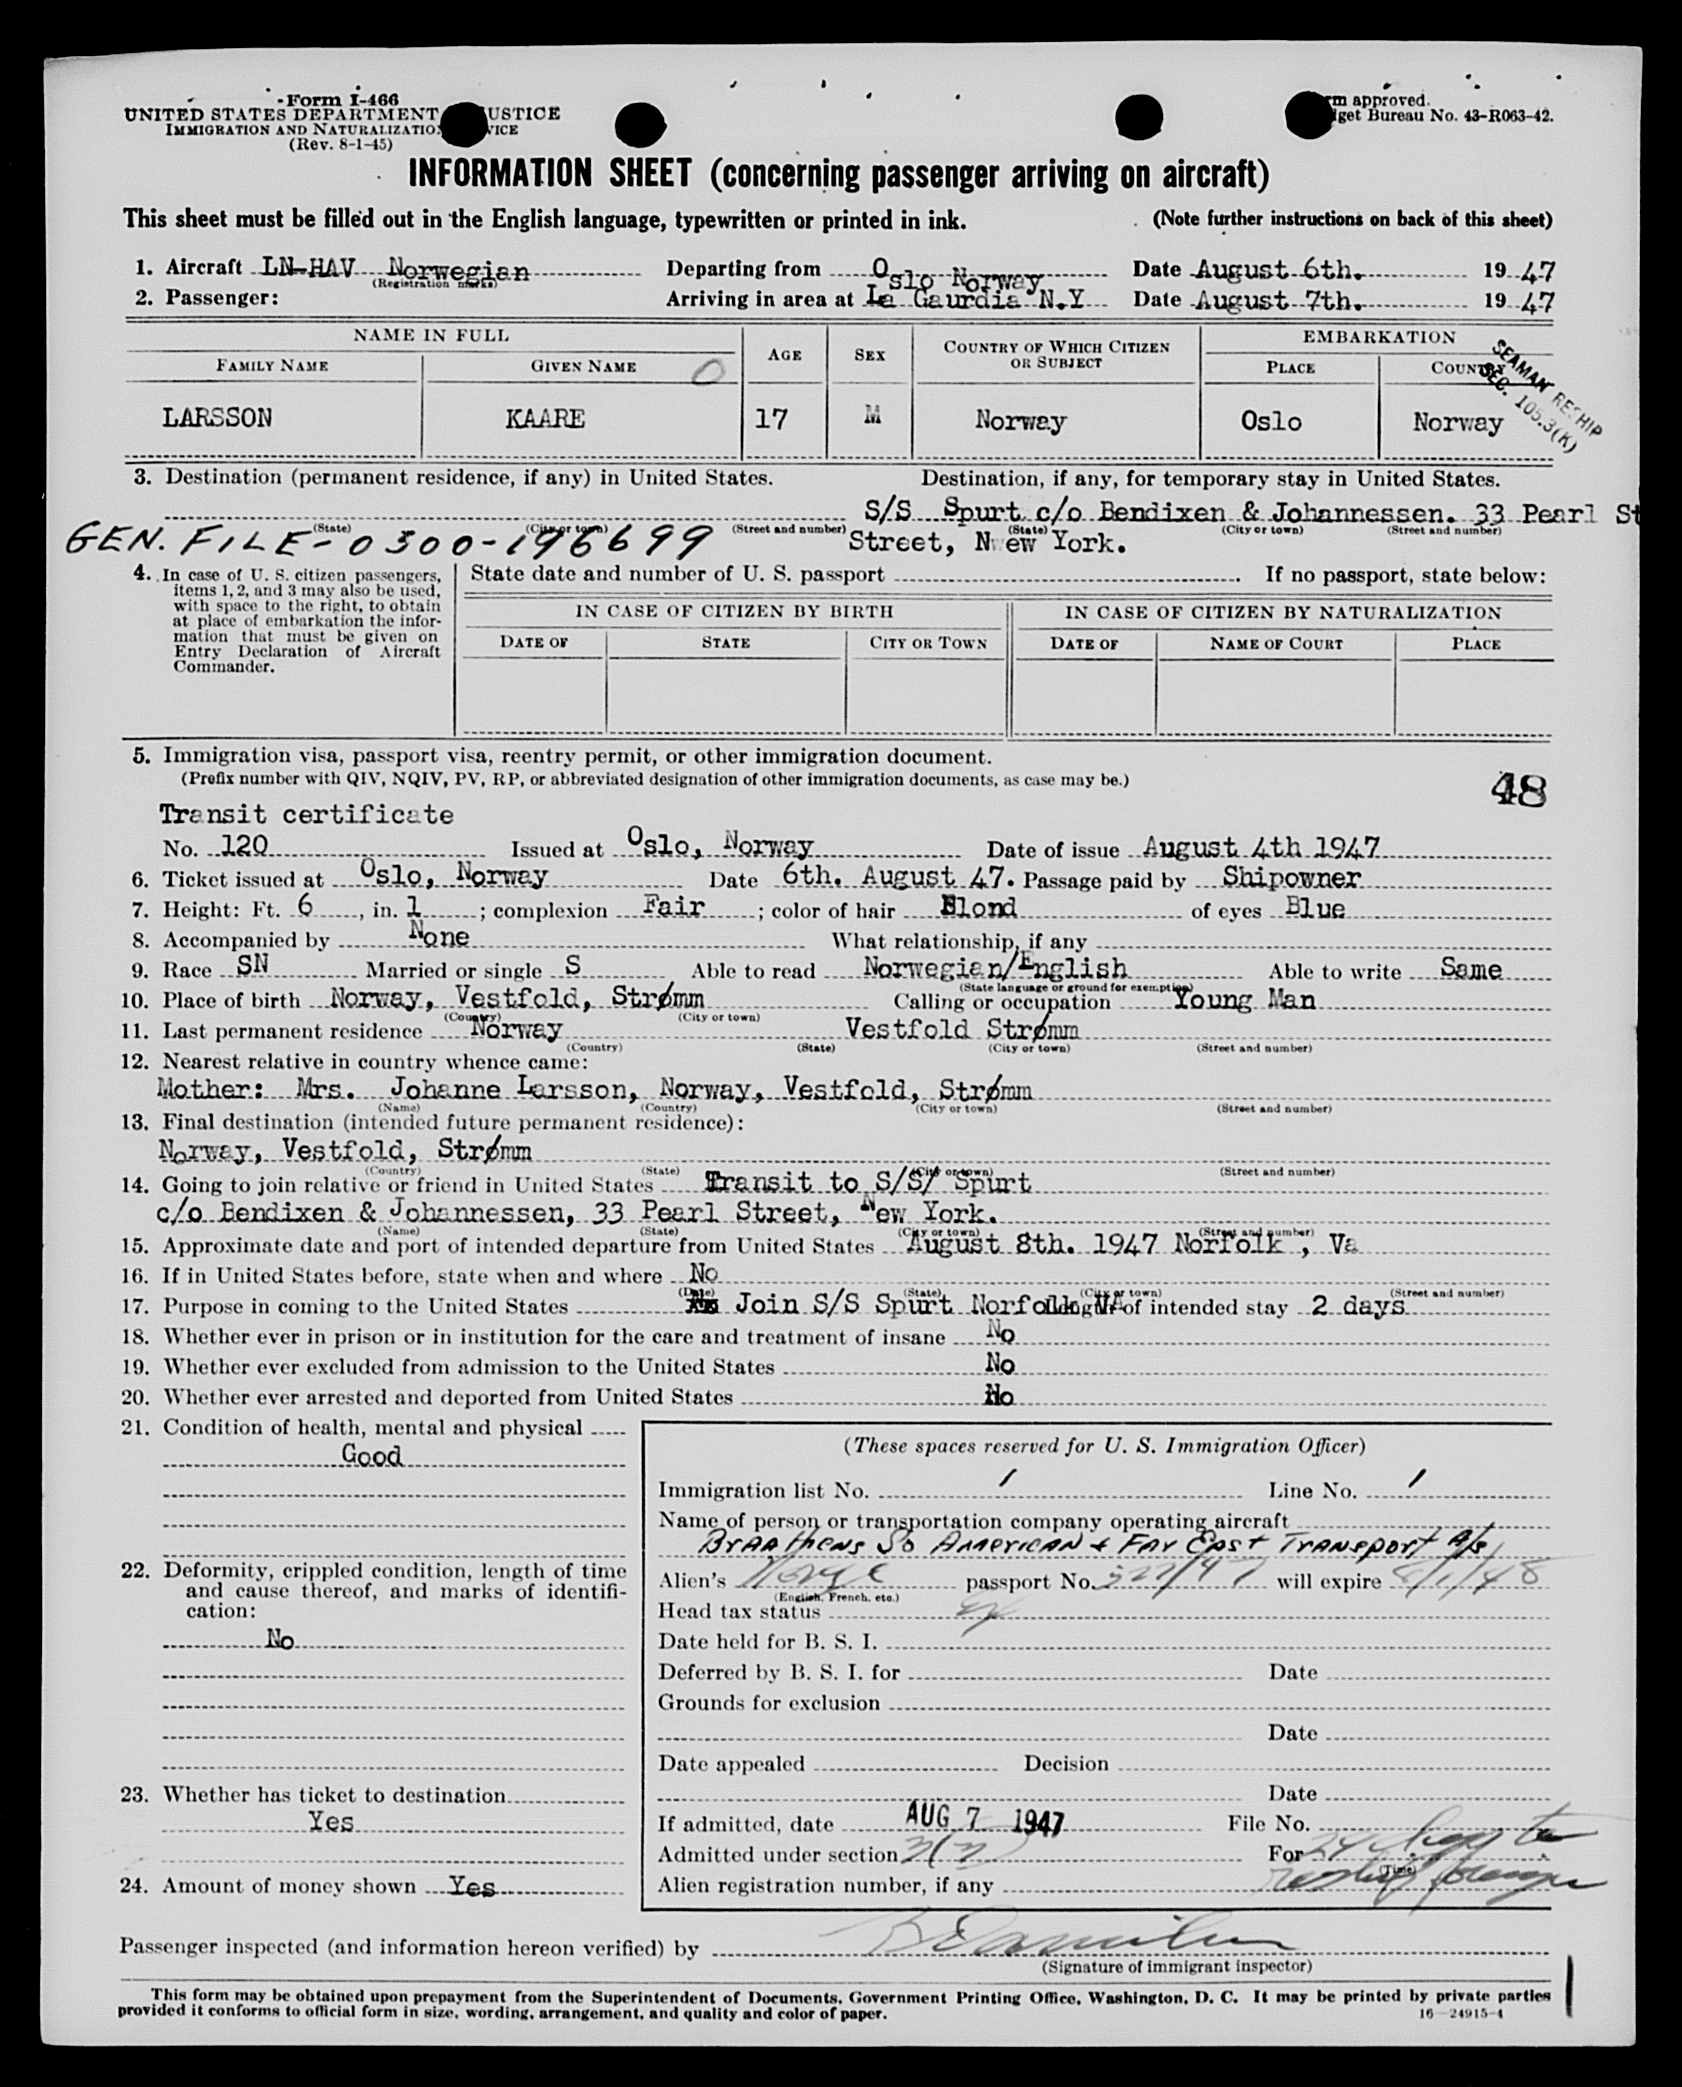 Form I-466
UNITED STATES DEPARTMENT USTICE
IMMIGRATION AND NATURALIZATIO VICE
(Rev. 8-1-45)
rm approved.
get Bureau No. 43-R063-42.
INFORMATION SHEET (concerning passenger arriving on aircraft)
This sheet must be filled out in the English language, typewritten or printed in ink. (Note further instructions on back of this sheet)
1. Aircraft LN-HAV Norwegian Departing from Oslo Norway Date August 6th. 19 47
(Registration marks)
2. Passenger: Arriving in area at La Gaurdia N.Y Date August 7th. 19 47
NAME IN FULL AGE SEX COUNTRY OF WHICH CITIZEN OR SUBJECT EMBARKATION
FAMILY NAME GIVEN NAME O PLACE COUNTRY
SEAMAN RESHIP
SEC. 105.3(K)
LARSSON KAARE 17 M Norway Oslo Norway
3. Destination (permanent residence, if any) in United States. Destination, if any, for temporary stay in United States.
S/S Spurt c/o Bendixen & Johannessen. 33 Pearl St
(State) (City or town) (Street and number) (State) (City or town) (Street and number)
GEN. FILE- 0300-196699 Street, New York.
4. In case of U. S. citizen passengers, items 1, 2, and 3 may also be used, with space to the right, to obtain at place of embarkation the information that must be given on Entry Declaration of Aircraft Commander.
State date and number of U. S. passport . If no passport, state below:
IN CASE OF CITIZEN BY BIRTH IN CASE OF CITIZEN BY NATURALIZATION
DATE OF STATE CITY OR TOWN DATE OF NAME OF COURT PLACE
5. Immigration visa, passport visa, reentry permit, or other immigration document.
(Prefix number with QIV, NQIV, PV, RP, or abbreviated designation of other immigration documents, as case may be.)
48
Transit certificate
No. 120 Issued at Oslo, Norway Date of issue August 4th 1947
6. Ticket issued at Oslo, Norway Date 6th. August 47. Passage paid by Shipowner
7. Height: Ft. 6, in. 1; complexion Fair; color of hair Blond of eyes Blue
8. Accompanied by None What relationship, if any
9. Race SN Married or single S Able to read Norwegian/English Able to write Same
(State language or ground for exemption)
10. Place of birth Norway, Vestfold, Strømm Calling or occupation Young Man
(Country) (City or town)
11. Last permanent residence Norway Vestfold Strømm
(Country) (State) (City or town) (Street and number)
12. Nearest relative in country whence came:
Mother: Mrs. Johanne Larsson, Norway, Vestfold, Strømm
(Name) (Country) (City or town) (Street and number)
13. Final destination (intended future permanent residence):
Norway, Vestfold, Strømm
(Country) (State) (City or town) (Street and number)
14. Going to join relative or friend in United States Transit to S/S/ Spurt
c/o Bendixen & Johannessen, 33 Pearl Street, New York.
(Name) (State) (City or town) (Street and number)
15. Approximate date and port of intended departure from United States August 8th. 1947 Norfolk , Va
16. If in United States before, state when and where No
(Date) (State) (City or town) (Street and number)
17. Purpose in coming to the United States Join S/S Spurt Norfolk VA Length of intended stay 2 days
18. Whether ever in prison or in institution for the care and treatment of insane No
19. Whether ever excluded from admission to the United States No
20. Whether ever arrested and deported from United States No
21. Condition of health, mental and physical
Good
22. Deformity, crippled condition, length of time and cause thereof, and marks of identification:
No
23. Whether has ticket to destination
Yes
24. Amount of money shown Yes
(These spaces reserved for U. S. Immigration Officer)
Immigration list No. 1 Line No. 1
Name of person or transportation company operating aircraft
Braathens So American & Far East Transport A/S
Alien's passport No. will expire
(English, French, etc.)
Head tax status
Date held for B. S. I.
Deferred by B. S. I. for Date
Grounds for exclusion
Date
Date appealed Decision
Date
If admitted, date AUG 7 1947 File No.
Admitted under section For
(Time)
Alien registration number, if any
Passenger inspected (and information hereon verified) by
(Signature of immigrant inspector)
This form may be obtained upon prepayment from the Superintendent of Documents, Government Printing Office, Washington, D. C. It may be printed by private parties
provided it conforms to official form in size, wording, arrangement, and quality and color of paper. 16—24915-4